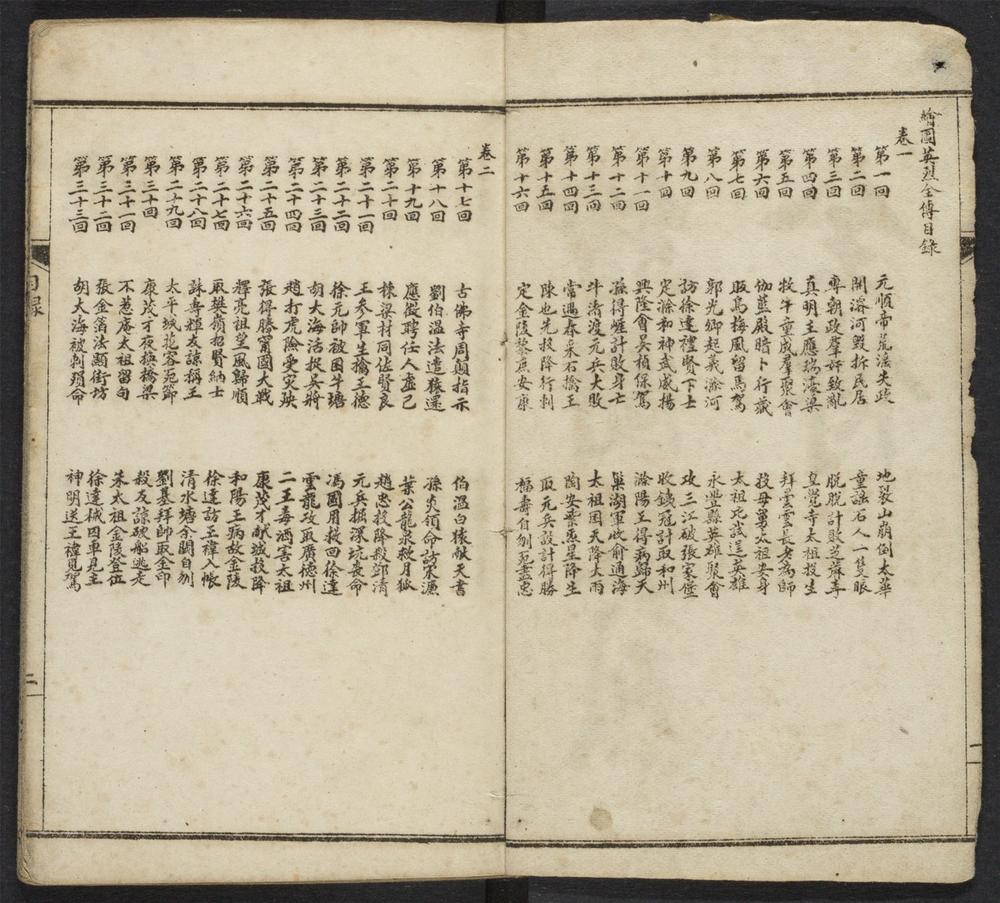 繪圖英烈全傳目錄
卷一
第一回 元順帝荒淫失政 地裂山崩倒太華
第二回 開濬河毀拆民居 童謠石人一隻眼
第三回 專朝政羣奸致亂 脫脫計敗芝蔴李
第四回 真明主應瑞濠梁 皇覺寺太祖投生
第五回 牧牛童成羣聚會 拜雲雲長老為師
第六回 伽藍殿暗卜行藏 投母舅太祖安身
第七回 販烏梅風留馬駕 太祖比試逞英雄
第八回 郭光卿起義滁河 永豐縣英雄聚會
第九回 訪徐達禮賢下士 攻三江破張家堡
第十回 定滁和神武威揚 收銕冠計取和州
第十一回 興隆會吳楨保駕 滁陽王得病歸天
第十二回 孫得崖計敗身亡 巢湖軍收俞通海
第十三回 牛渚渡元兵大敗 太祖困天降大雨
第十四回 常遇春采石擒王 陶安乘愚星降生
第十五回 陳也先投降行刺 取元兵設計得勝
第十六回 定金陵黎庶安康 福壽自刎死盡忠
卷二
第十七回 古佛寺周顛指示 伯温白猿献天書
第十八回 劉伯温法遣猿還 孫炎領命訪宋濂
第十九回 應徵聘任人虛己 葉公龍泉救月狐
第二十回 棟梁材同佐賢良 趙忠投降殺鄧清
第二十一回 王參軍生擒王德 元兵掘深坑喪命
第二十二回 徐元帥被困牛塘 馮國用救回徐達
第二十三回 胡大海活捉吳將 雲龍攻取廣德州
第二十四回 趙打虎險受灾殃 二王毒酒害太祖
第二十五回 張得勝甯國大戰 康茂才献城投降
第二十六回 釋亮祖望風歸順 和陽王病故金陵
第二十七回 取樊嶺招賢納士 徐達訪王禕入帳
第二十八回 誅壽輝友諒稱王 清水塘余闕自刎
第二十九回 太平城花客死節 劉基拜帥取金印
第三十回 康茂才夜換橋梁 殺友諒破船逃走
第三十一回 不惹庵太祖留句 朱太祖金陵登位
第三十二回 張金箔法顯街坊 徐達械囚車見主
第三十三回 胡大海被刺殞命 神明送王禕見駕
目錄
二
一